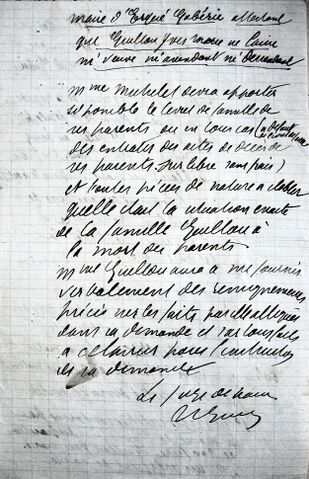 maire d'Ergué Gabéric attestant
que Guillou Yves marie ne laisse
ni veuve ni ascendant ni descendant
Mme Michelet devra apporter
si possible le livret de famille de
ses parents ou en tous cas (à défaut
des extraits des actes de décès de
ses parents. sur libre sans frais)
et toutes pièces de nature à établir
quelle était la situation exacte
de la famille Guillou à
la mort des parents
Mme Guillou aura à me fournir
verbalement des renseignements
précis sur les faits par elle allégués
dans sa demande et sur tous faits
à éclairer pour l'instruction
de sa demande
Le juge de paix